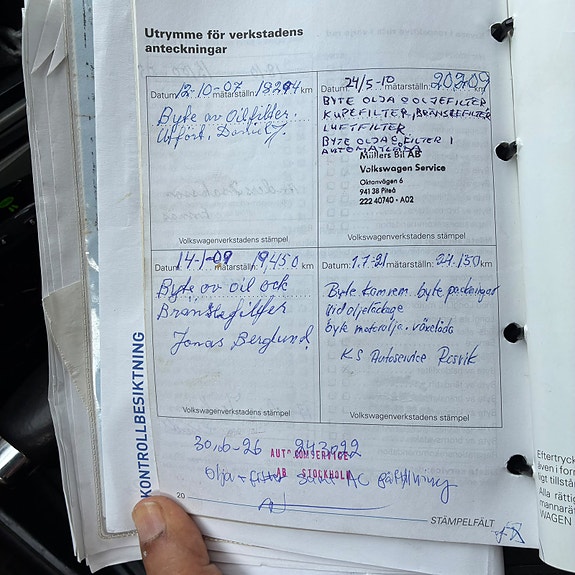 Utrymme för verkstadens
anteckningar
Datum: 12-10-07 mätarställn: 18294 km
Byte av Oilfilter.
Utfört, Daniel J.
Volkswagenverkstadens stämpel
Datum: 24/5-10 mätarställn: 20209
BYTE OLJA O OLJEFILTER
KUPEFILTER, BRÄNSLEFILTER
LUFTFILTER
BYTE OLJA O FILTER I
AUTOMATLÅDA
Müllers Bil AB
Volkswagen Service
Oktanvägen 6
941 38 Piteå
222 40740 - A02
Volkswagenverkstadens stämpel
Datum: 14-1-09 mätarställn: 19,450 km
Byte av oil och
Bränslefilfter
Jonas Berglund
Volkswagenverkstadens stämpel
Datum: 1.1-21 mätarställn: 24.150 km
Byte kamrem. byte packningar
vid oljeläckage
byte motorolja. växellåda
KS Autoservice Rosvik
Volkswagenverkstadens stämpel
KONTROLLBESIKTNING
30,6-26 243092
AUTOKOMSERVICE
AB STOCKHOLM
Olja + filter AC påfyllning
20
STÄMPELFÄLT
Eftertryck
även i form
ligt tillstån
Alla rättig
mannarät
WAGEN